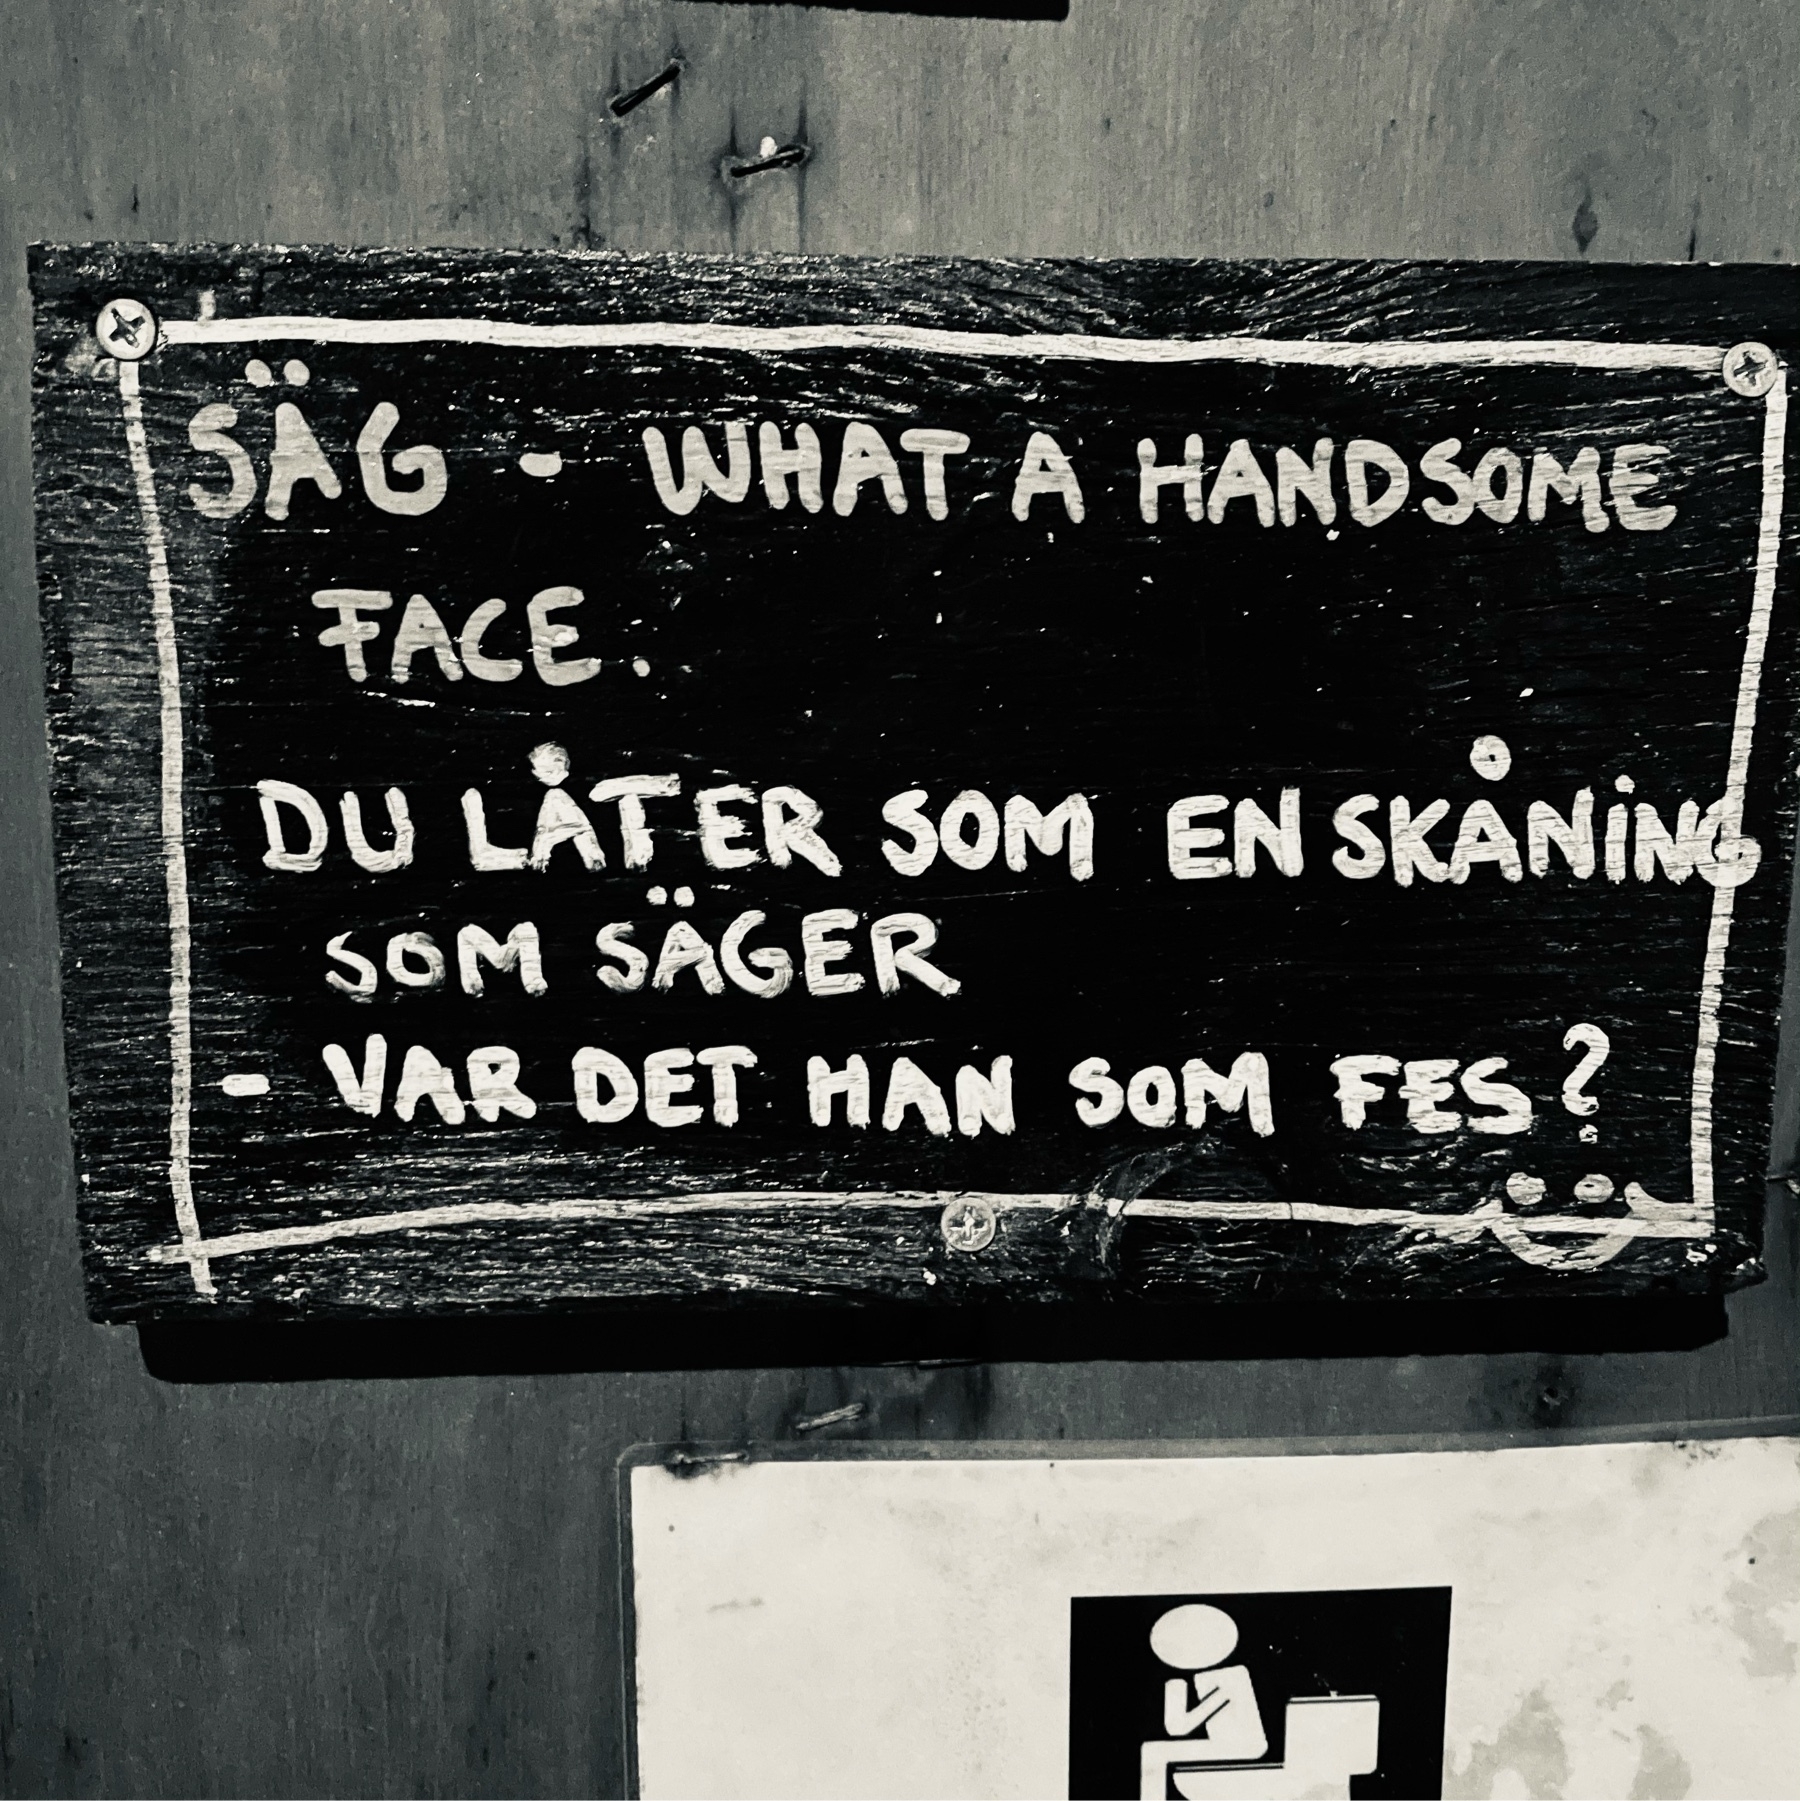 SÄG - WHAT A HANDSOME
FACE.
DU LÅTER SOM EN SKÅNING
SOM SÄGER
- VAR DET HAN SOM FES?